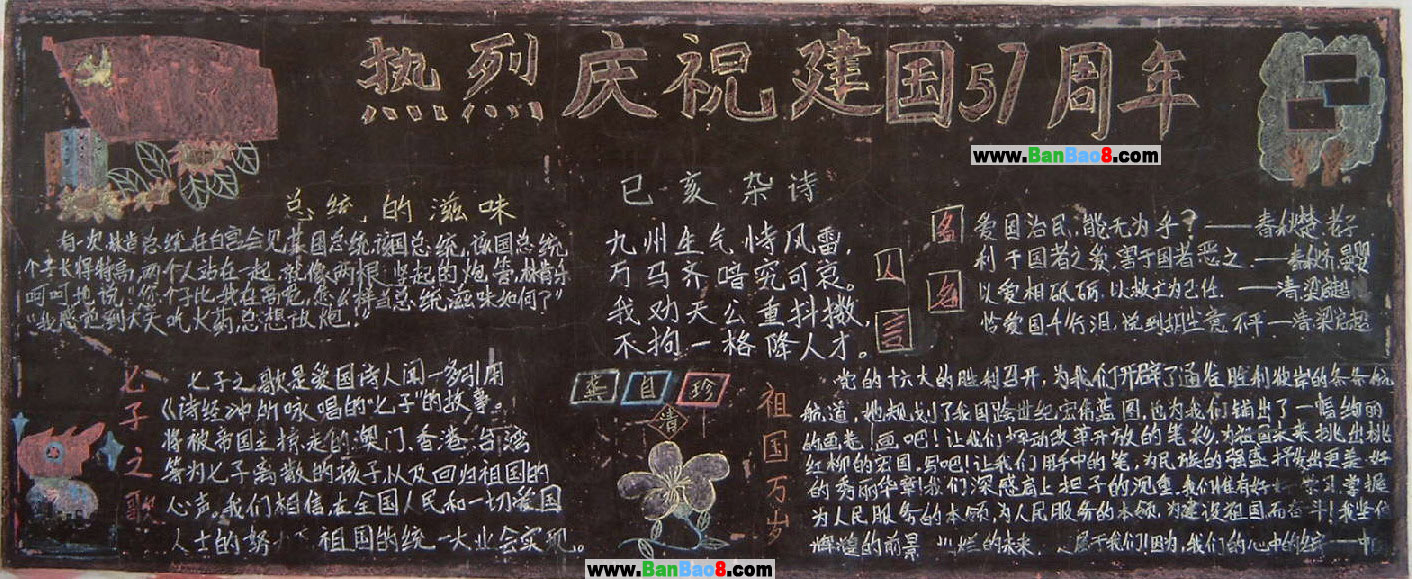 热烈庆祝建国57周年
www.BanBao8.com
总统的滋味
有一次 总统在白宫会见某国总统,该国总统,该国总统,
个子长得特高,两个人站在一起,就像两根竖起的炮管,
呵呵地说!您个子比我在高 ,怎么样当总统滋味如何了"
"我感觉到天天吃火药总想放炮。"
已亥杂诗
九州生气恃风雷,
万马齐喑究可哀。
我劝天公重抖擞,
不拘一格降人才。
龚自珍
清
名人名言
爱国治民,能无为乎?——春秋楚老子
利于国者之爱,害于国者恶之。——春秋齐晏婴
以爱相砥砺,以救 为己任。——清梁启超
恰爱国千行泪,说到胡尘意不平——清梁启超
七子之歌
七子之歌是爱国诗人闻一多引用
《诗经》中所咏唱的"七子"的故事。
将被帝国主掠走的澳门、香港、台湾
等为七子离散的孩子以及回归祖国的
心声。我们相信,在全国人民和一切爱国
人士的努 祖国的统一大业会实现。
祖国万岁
党的十六大的胜利召开,为我们开辟了通往胜利彼岸的条条航
航道,她规划了我国跨世纪宏伟蓝图,也为我们描出了一幅绚丽
的画卷,画吧!让我们挥动改革开放的笔 ,为祖国未来挑出桃
红柳的宏图,写吧!让我们用手中的笔,为民族的强盛抒发出更美好
的秀丽华章!我们深感肩上担子的沉重,我们惟有好好学习,掌握
为人民服务的本领,为人民服务的本领,为建设祖国而奋斗!我坚信
辉煌的前景 烂的未来, 属于我们!因为,我们的心中的 ——中
www.BanBao8.com